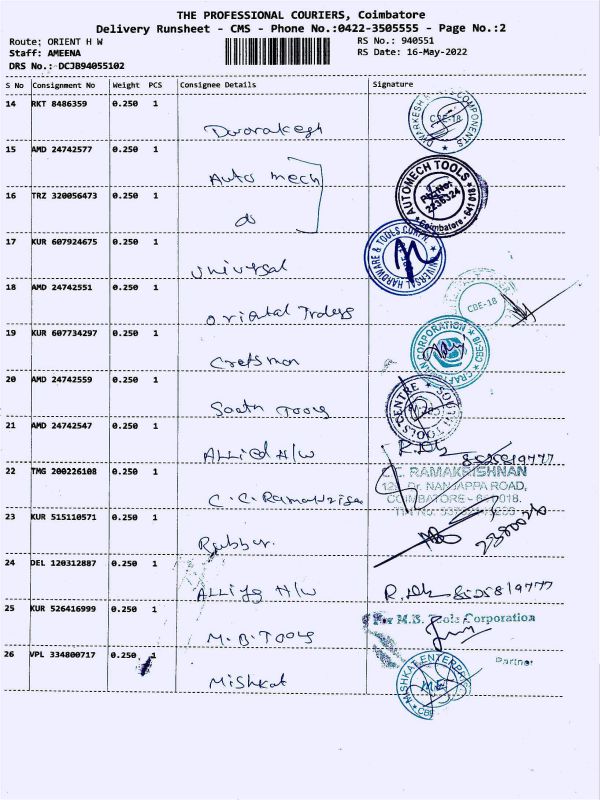 THE PROFESSIONAL COURIERS, Coimbatore
Delivery Runsheet - CMS - Phone No.:0422-3505555 - Page No.:2
Route: ORIENT H W
RS No.: 940551
Staff: AMEENA
RS Date: 16-May-2022
DRS No.: DCJB94055102
S No Consignment No Weight PCS Consignee Details Signature
14 RKT 8486359 0.250 1
Dwarakesh
DWARKESH COMPONENTS CBE-18
15 AMD 24742577 0.250 1
Auto mech
AUTOMECH TOOLS
Ph:No: 2236324
Coimbatore - 641 018
16 TRZ 320056473 0.250 1
do
17 KUR 607924675 0.250 1
Universal
UNIVERSAL HARDWARE & TOOLS CORPN.
18 AMD 24742551 0.250 1
Oriental Traders
CBE-18
19 KUR 607734297 0.250 1
Craftsman
CORPORATION
20 AMD 24742559 0.250 1
South Tools
SOUTH TOOLS CENTRE
21 AMD 24742547 0.250 1
Allied H/W
8525819777
22 TMG 200226108 0.250 1
C.C. RAMAKRISHNAN
Dr. NANJAPPA ROAD,
COIMBATORE - 641 018.
23 KUR 515110571 0.250 1
Rubber.
2380020
24 DEL 120312887 0.250 1
H/W
8525819777
25 KUR 526416999 0.250 1
M.B. Tools
For M.B. Tools Corporation
Partner
26 VPL 334800717 0.250 1
Mishkat
MISHKAT ENTERPRISE
M.E
CBE